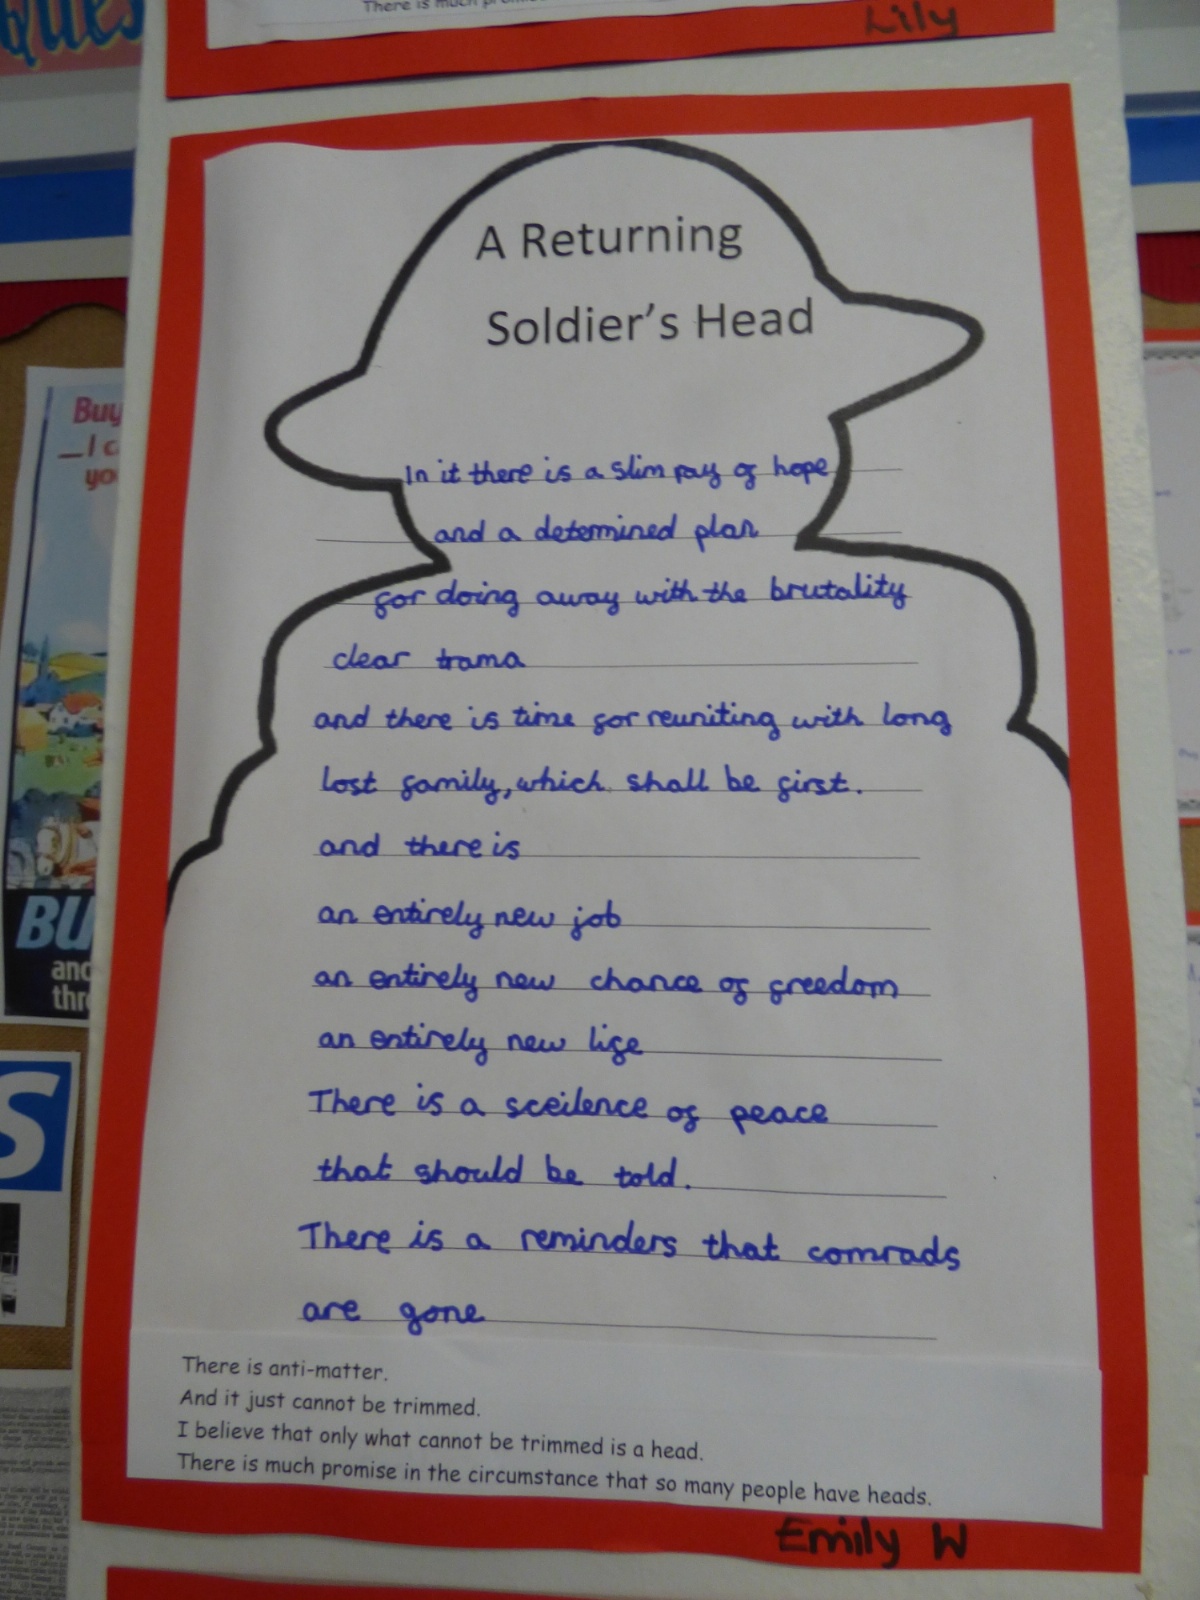 Ques
There is much
Lily
A Returning
Soldier's Head
In it there is a slim ray of hope
and a determined plan
for doing away with the brutality
clear trama
and there is time for reuniting with long
lost family, which shall be first.
and there is
an entirely new job
an entirely new chance of freedom
an entirely new life
There is a sceilence of peace
that should be told.
There is a reminders that comrads
are gone
There is anti-matter.
And it just cannot be trimmed.
I believe that only what cannot be trimmed is a head.
There is much promise in the circumstance that so many people have heads.
Emily W
Buy
I c
yo
BU
and
thr
S